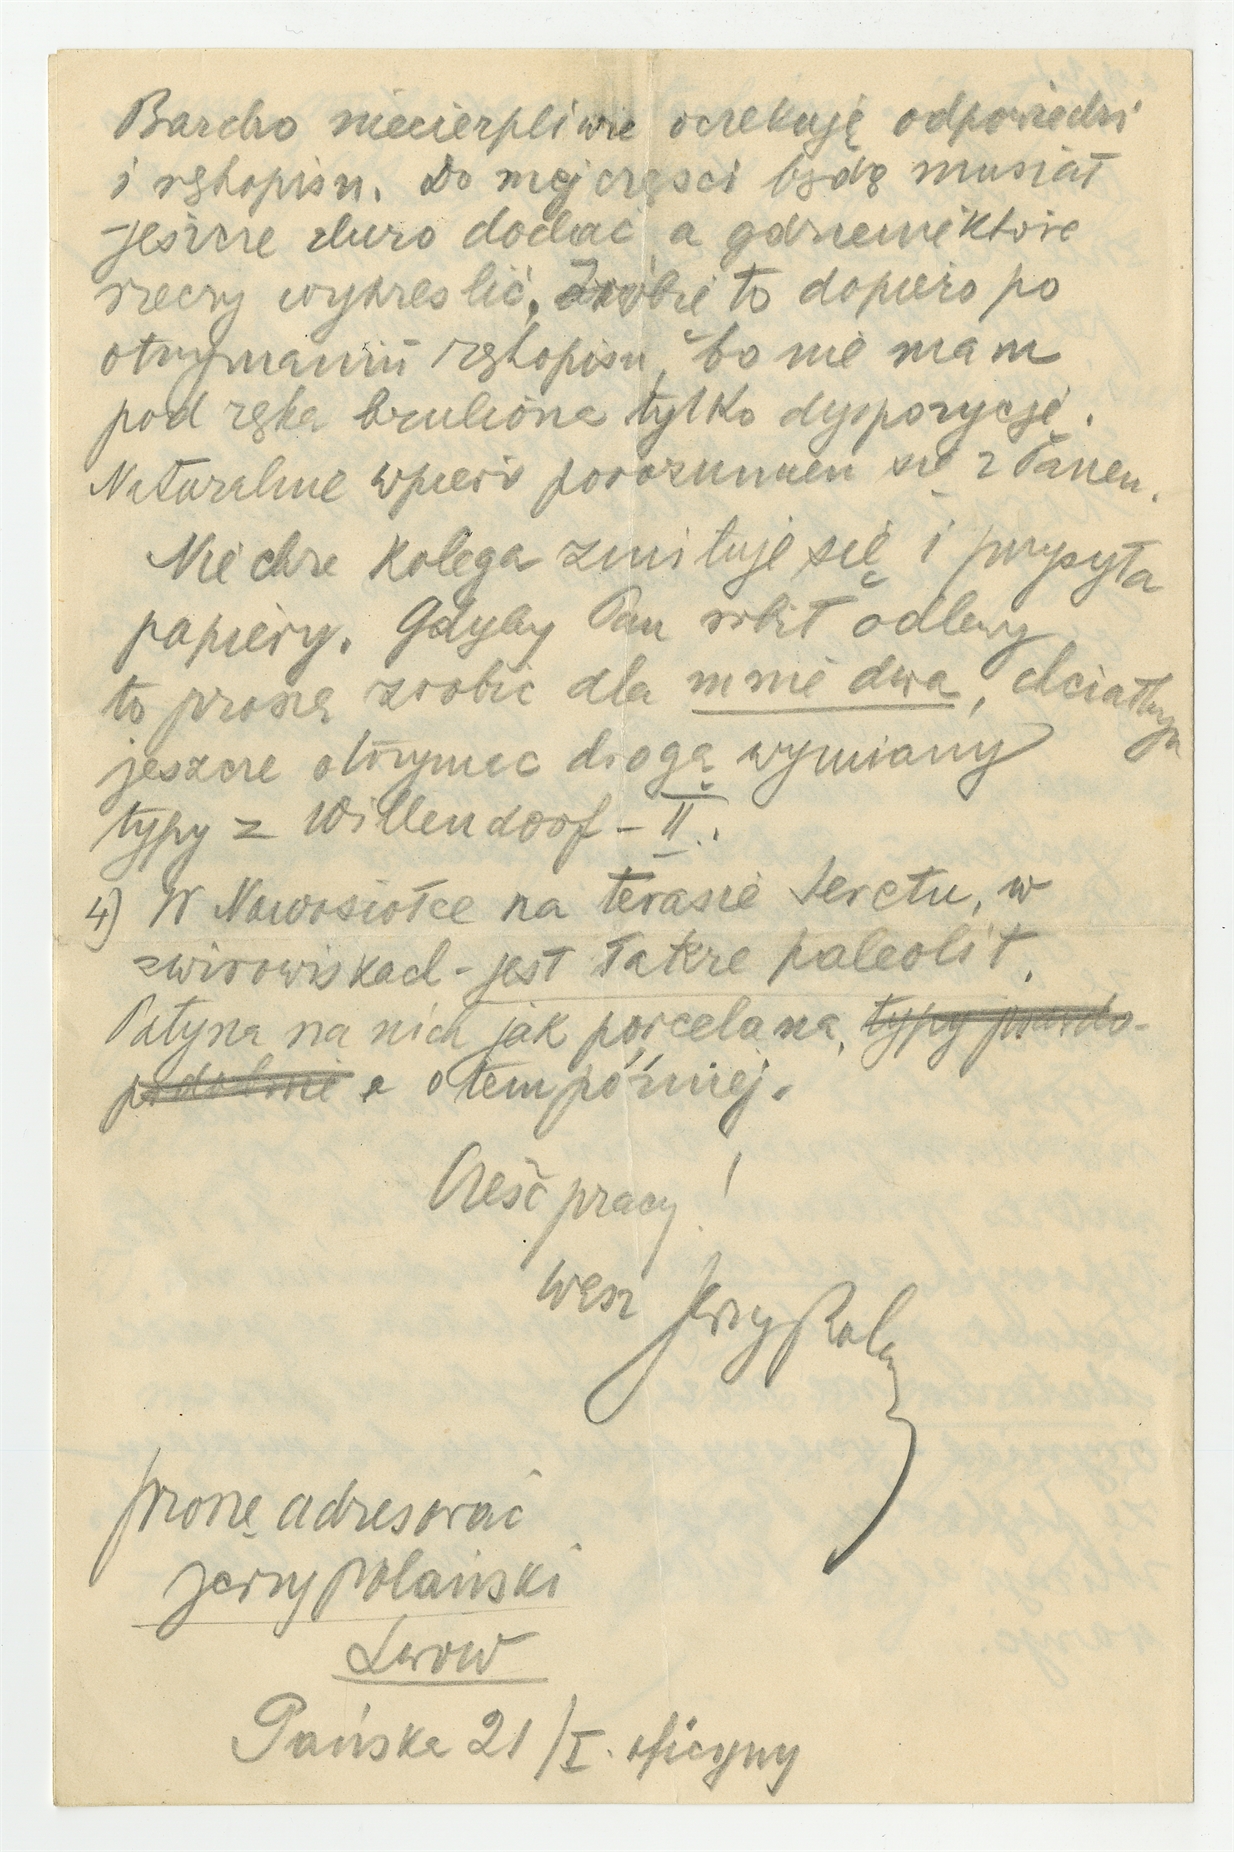 Bardzo niecierpliwie oczekuję odpowiedzi
i rękopisu. Do mej części będę musiał
jeszcze dużo dodać a gdzieniektóre
rzeczy wykreslić, Zrobię to dopiero po
otrzymaniu rękopisu, bo nie mam
pod ręka bruliona tylko dyspozycję.
Naturalnie wpierw porozumiem się z Panem.
Niechze Kolega zmiłuje się i przysyła
papiery. Gdyby Pan robił odlewy
to proszę zrobic dla mnie dwa, chciałbym
jeszcze otrzymac drogą wymiany
typy z Willendorf - II.
4) W Nowosiołce na terasie Seretu, w
zwirowiskach - jest także paleolit.
Patyna na nich jak porcelana, typy prawdo-
podobnie a o tem później.
Cześć pracy!
Wasz Jerzy Polań
proszę adresować
Jerzy Polański
Lwow
Pańska 21/I. oficyny